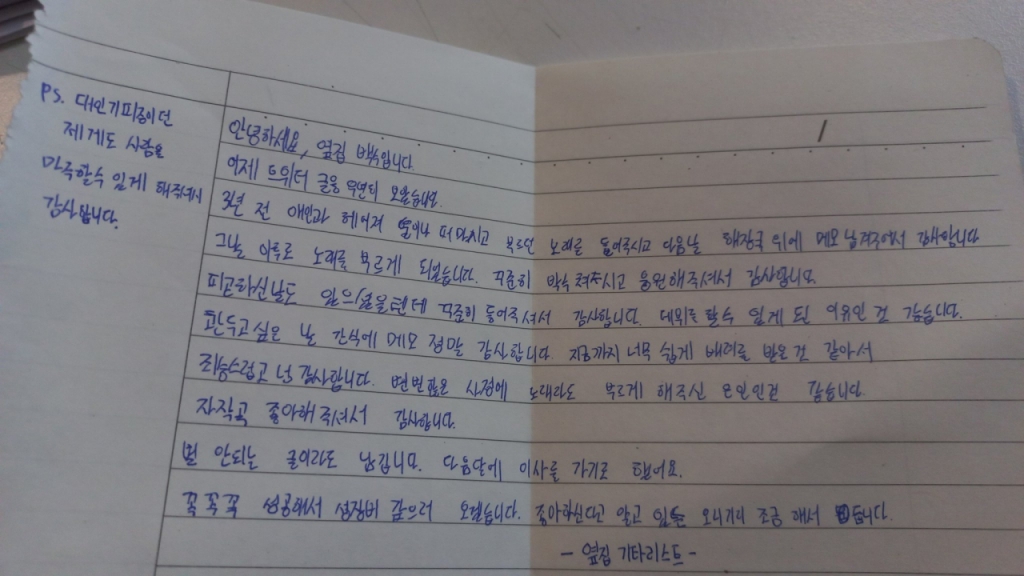 PS. 대인기피증이던
제게도 사람을
만족할수 있게 해주셔서
감사합니다.
안녕하세요, 옆집 백수입니다.
어제 트위터 글을 우연히 보았습니다.
3년 전 애인과 헤어져 술이나 퍼마시고 부르던 노래를 들어주시고 다음날 해장국 위에 메모 남겨주셔서 감사합니다
그날 이후로 노래를 부르게 되었습니다. 꾸준히 박수 쳐주시고 응원해주셔서 감사합니다
피곤하신날도 있으셨을텐데 꾸준히 들어주셔서 감사합니다. 데뷔를 할수 있게 된 이유인 것 같습니다.
관두고싶은 날 간식에 메모 정말 감사합니다. 지금까지 너무 쉽게 배려를 받은 것 같아서
죄송스럽고 넘 감사합니다. 변변찮은 사정에 노래라도 부르게 해주신 은인인것 같습니다.
자작곡 좋아해 주셔서 감사합니다.
안되는 글이라도 남깁니다. 다음달에 이사를 가기로 했어요.
꼭꼭꼭 성공해서 성장비 갚으러 오겠습니다. 좋아하신다고 알고 있는 조금 해서 둡니다.
- 옆집 기타리스트 -